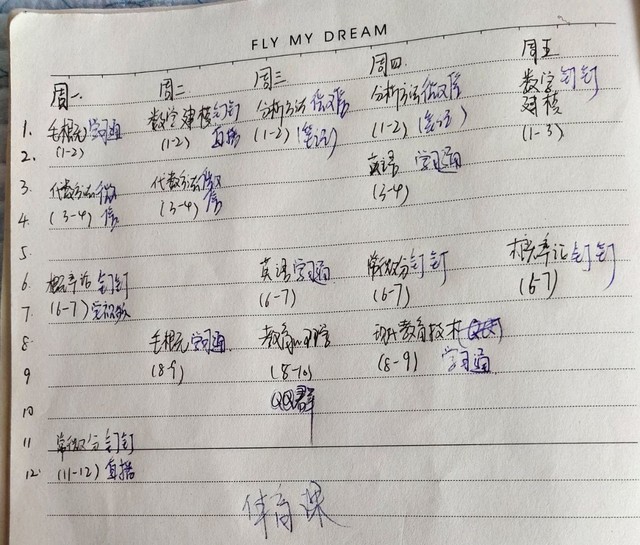 FLY MY DREAM
周一 周二 周三 周四 周五
1. 毛概元 学习通 数学建模 钉钉 分析方法 微信 分析方法 微信 数学 钉钉
(1-2) (1-2) 直播 (1-2) (笔记) (1-2) 建模
2. (1-3)
英语 学习通
3. 代数方法 微信 代数方法 微信 (3-4)
4. (3-4) (3-4)
5.
6. 概率论 钉钉 英语 学习通 常微分 钉钉 概率论 钉钉
7. (6-7) (6-7) (6-7) (6-7)
8. 毛概元 学习通 教育心理学 现代教育技术
9. (8-9) (8-10) (8-9) 学习通
10 QQ群
11 常微分 钉钉
12 (11-12) 直播
体育课